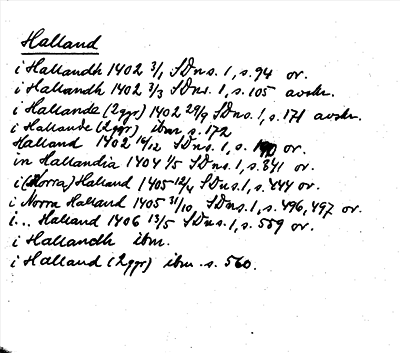 Halland
i Hallandh 1402 3/1 SDns. 1, s. 94 or.
i Hallandh 1402 3/3 SDns. 1, s. 105 avskr.
i Hallande (2ggr) 1402 29/9 SDns. 1, s. 171 avskr.
i Hallande (2ggr) ibm s. 172
Halland 1402 14/12 SDns. 1, s. or.
in Hallandia 1404 1/5 SDns. 1, s. 341 or.
i (Norra) Halland 1405 12/4 SDns. 1, s. 444 or.
i Norra Halland 1405 31/10 SDns. 1, s. 496, 497 or.
i... Halland 1406 13/5 SDns. 1, s. 559 or.
i Hallandh ibm.
i Halland (2ggr) ibm. s. 560.